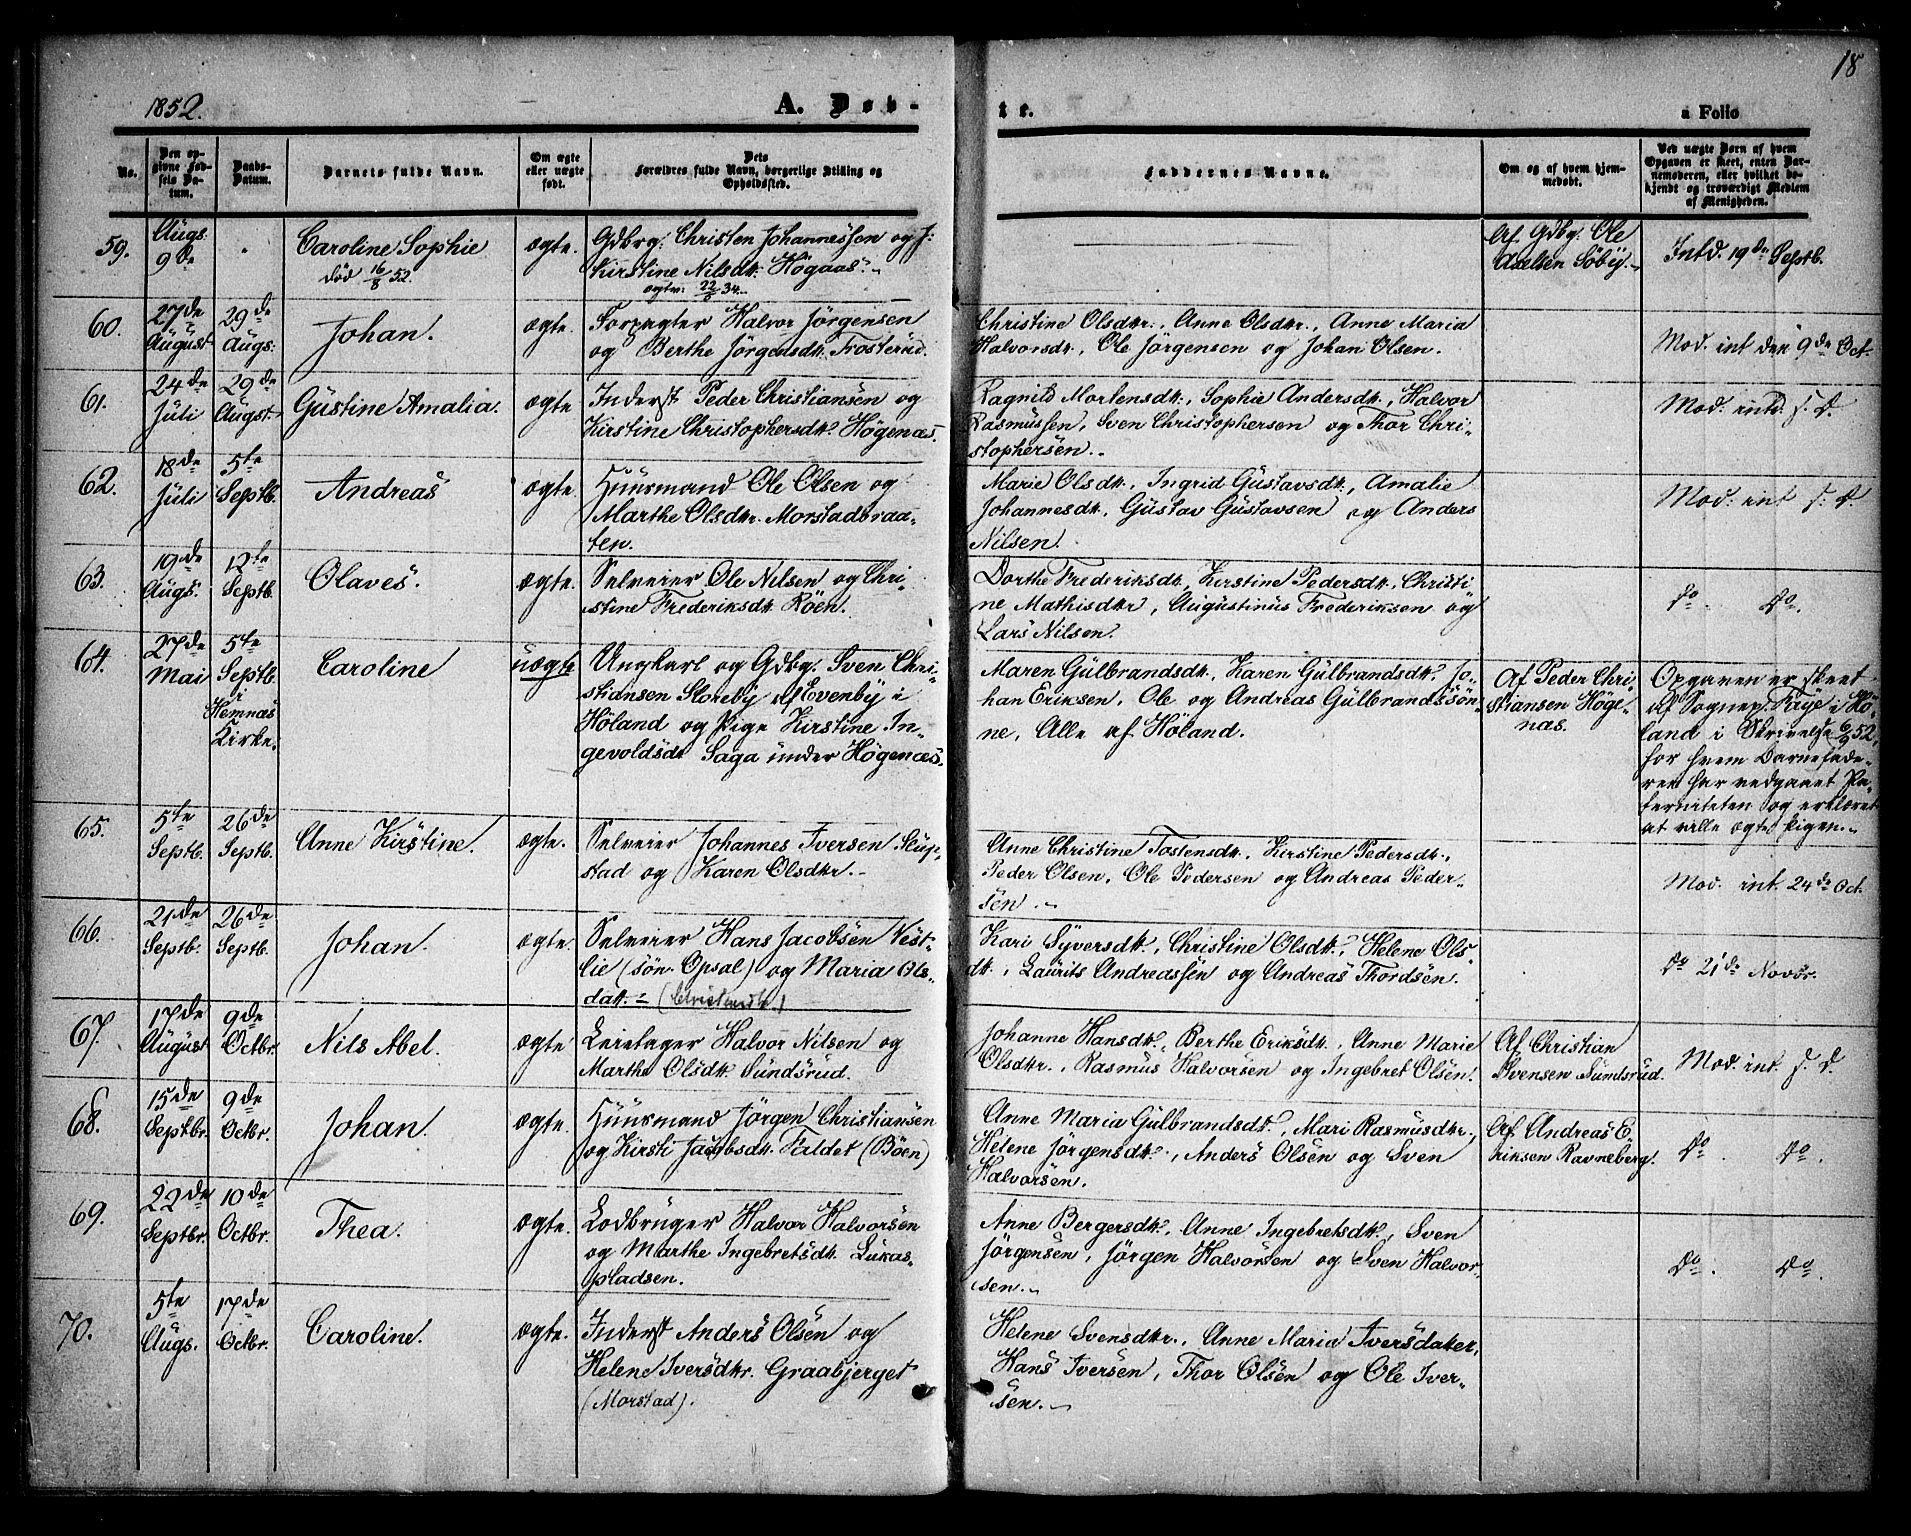 1852.
A. Døb-
te.
a Folio
18
No.
Den op-
givne Fød-
sels Da-
tum.
Daabs-
Datum.
Barnets fulde Navn.
Om ægte
eller uægte
født.
Dets
Forældres fulde Navn, borgerlige Stilling og
Opholdssted.
Faddernes Navne.
Om og af hvem hjem-
medøbt.
Ved uægte Børn af hvem
Opgaven er skeet, enten Bar-
nemoderen, eller hvilket be-
kjendt og troværdigt Medlem
af Menigheden.
59.
Augs.
9de
Caroline Sophie
død 16/8 52.
ægte.
Gdbrg. Christen Johannessen og J:
Kirstine Nilsdt. Högaas.
ægtv: 22/5 34.
Af Gdbg. Ole
Axelsen Söby.
Intd. 19de Septb.
60.
27de
August
29de
Augs.
Johan.
ægte.
Forpagter Halvor Jörgensen
og Berthe Jörgensdt. Trosterud.
Christine Olsdtr., Anne Olsdtr., Anne Maria
Halvorsdt., Ole Jörgensen og Johan Olsen.
Mod. int den 9de Oct.
61.
24de
Juli
29de
Augst.
Gustine Amalia.
ægte
Inderst Peder Christiansen og
Kirstine Christophersdt. Högenæs.
Ragnild Mortensdt., Sophie Andersdt., Halvor
Rasmussen, Sven Christophersen og Thor Chri-
stophersen.
Mod. intd. s. D.
62.
18de
Juli
5te
Septb.
Andreas
ægte.
Huusmand Ole Olsen og
Marthe Olsdtr. Morstadbraa-
ten.
Marie Olsdt., Ingrid Gustavsdt., Amalie
Johannesdt., Gustav Gustavsen og Anders
Nilsen.
Mod. int s. D.
63.
19de
Augs.
12te
Septb.
Olaves.
ægte.
Selveier Ole Nilsen og Chri-
stine Frederiksdt. Röen.
Dorthe Frederiksdt., Kirstine Pedersdt., Christi-
ne Mathisdtr, Augustinus Frederiksen og
Lars Nilsen.
Do. Do.
64.
27de
Mai
5te
Septb.
i
Hemnæs
Kirke.
Caroline
uægte
Ungkarl og Gdbg. Sven Chri-
stiansen Storeby af Evenby i
Höland og Pige Kirstine In-
gevoldsdt Saga under Högenæs.
Maren Gulbrandsdt., Karen Gulbrandsdt., Jo-
han Eriksen, Ole og Andreas Gulbrandssön-
ne, Alle af Höland.
Af Peder Chri-
stiansen Höge-
næs.
Opgaven er skeet
af Sognep. Faye i Hö-
land i Skrivelse 6/9 52,
for hvem Barnefade-
ren har vedgaaet Pa-
terniteten og erklæret
at ville ægte Pigen.
65.
5te
Septb.
26de
Septb.
Anne Kirstine.
ægte.
Selveier Johannes Iversen Slup-
stad og Karen Olsdtr.
Anne Christine Tostensdt., Kirstine Pedersdt.,
Peder Olsen, Ole Pedersen og Andreas Peder-
sen.
Mod. int. 24de Oct.
66.
21de
Septb.
26de
Septb.
Johan.
ægte.
Selveier Hans Jacobsen Vest-
lie (søn. Opsal) og Maria Ols-
datr.
Kari Syversdt., Christine Olsdt., Helene Ols-
dt., Laurits Andreassen og Andreas Thordsen.
Do 21de Novbr.
67.
17de
August
9de
Octbr.
Nils Abel.
ægte
Leietager Halvor Nilsen og
Marthe Olsdt. Sundsrud.
Johanne Hansdt., Berthe Eriksdt., Anne Marie
Olsdtr., Rasmus Halvorsen og Ingebret Olsen.
Af Christian
Svensen Sundsrud.
Mod. int. s. D.
68.
15de
Septbr.
9de
Octbr.
Johan.
ægte.
Huusmand Jörgen Christiansen
og Kirsti Jacobsdt. Faldet (Böen)
Anne Maria Gulbrandsdt., Mari Rasmusdtr.,
Helene Jörgensdt., Anders Olsen og Sven
Halvorsen.
Af Andreas E-
riksen Ravneberg.
Do. Do.
69.
22de
Septbr.
10de
Octbr.
Thea.
ægte.
Lodbruger Halvor Halvorsen
og Marthe Ingebretsdt. Lukas-
pladsen.
Anne Bergersdt., Anne Ingebretsdt., Sven
Jörgensen, Jörgen Halvorsen og Sven Halvor-
sen.
Do. Do.
70.
5te
Augs.
17de
Octbr.
Caroline.
ægte.
Inderst Anders Olsen og
Helene Iversdtr. Graabjerget
(Morstad).
Helene Svensdtr., Anne Maria Iversdatter,
Hans Iversen, Thor Olsen og Ole Iver-
sen.